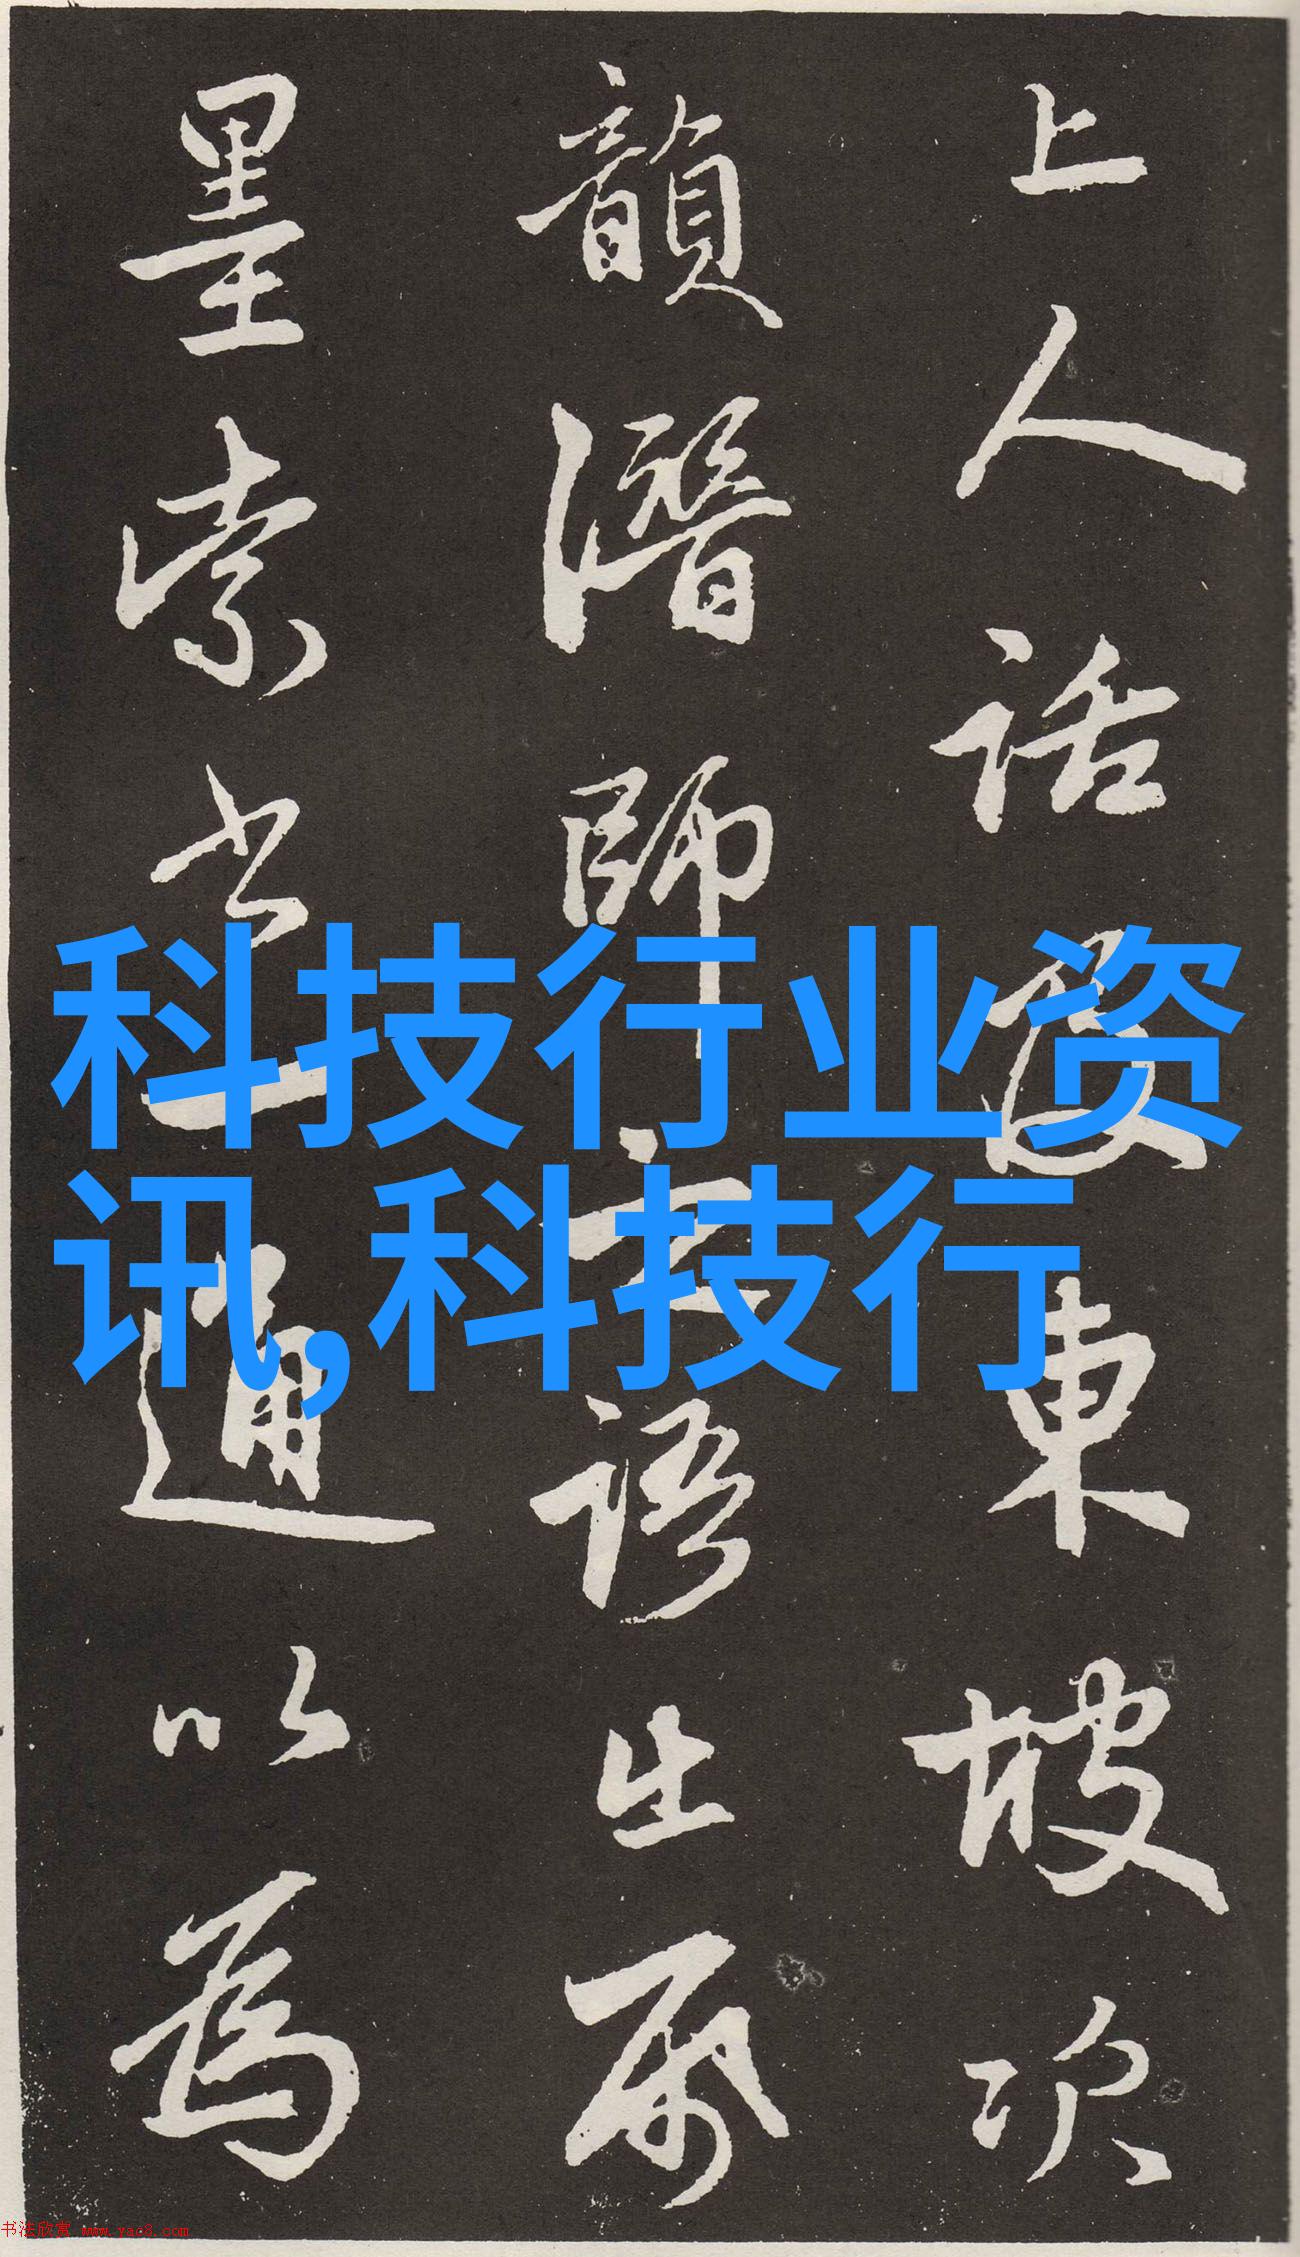 上人話及東坡次
韻潛師之語生前
墨索書一通以為
科技行业资
讯,科技行
书法欣赏 www.yac8.com